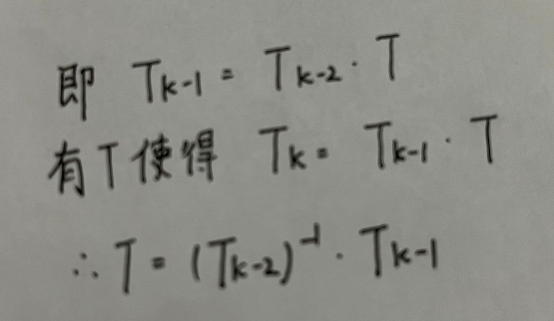 即 T_{k-1} = T_{k-2} · T
有T使得 T_k = T_{k-1} · T
∴ T = (T_{k-2})^{-1} · T_{k-1}